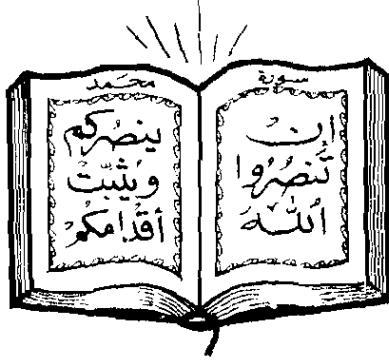 سورة
إن
تنصُرُوا
اللَّه
محمد
ينصُركم
ويثبِّت
أقدامكمْ